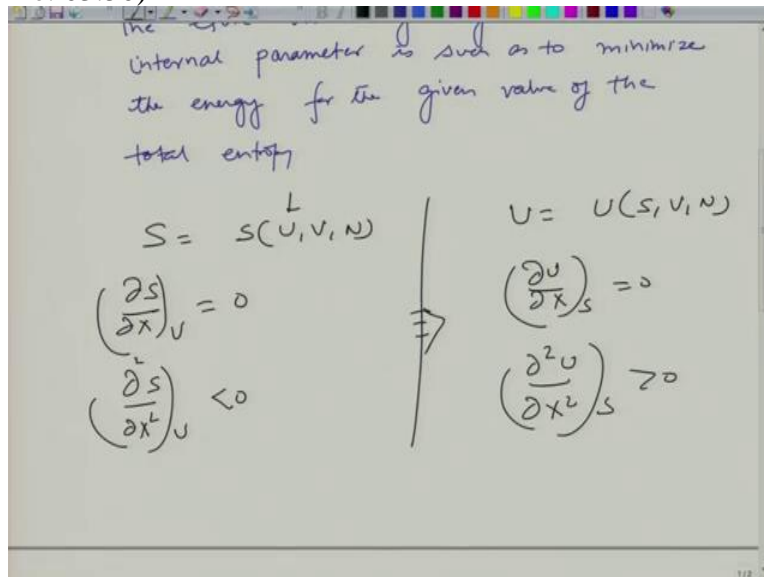 internal parameter is such as to minimize
the energy for the given value of the
total entropy
S = S(U, V, N)
(∂S/∂X)_U = 0
(∂²S/∂X²)_U < 0
⇒
U = U(S, V, N)
(∂U/∂X)_S = 0
(∂²U/∂X²)_S > 0
1/2